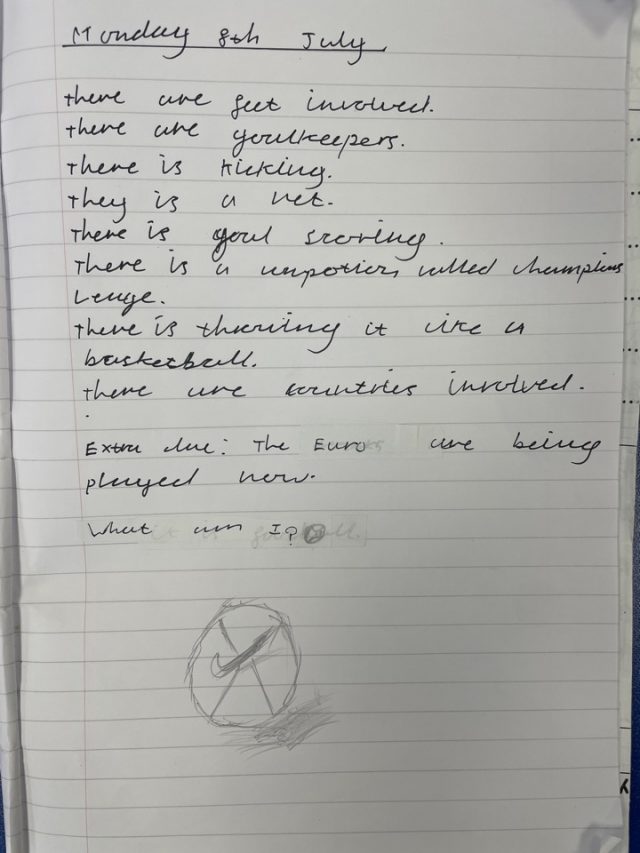 Monday 8th July
there are feet involved.
there are goalkeepers.
There is kicking.
they is a net.
there is goal scoring.
there is a unpotion called champions
leuge.
there is throwing it like a
basketball.
there are countries involved.
Extra clue: The Euros are being
played now.
What am I?